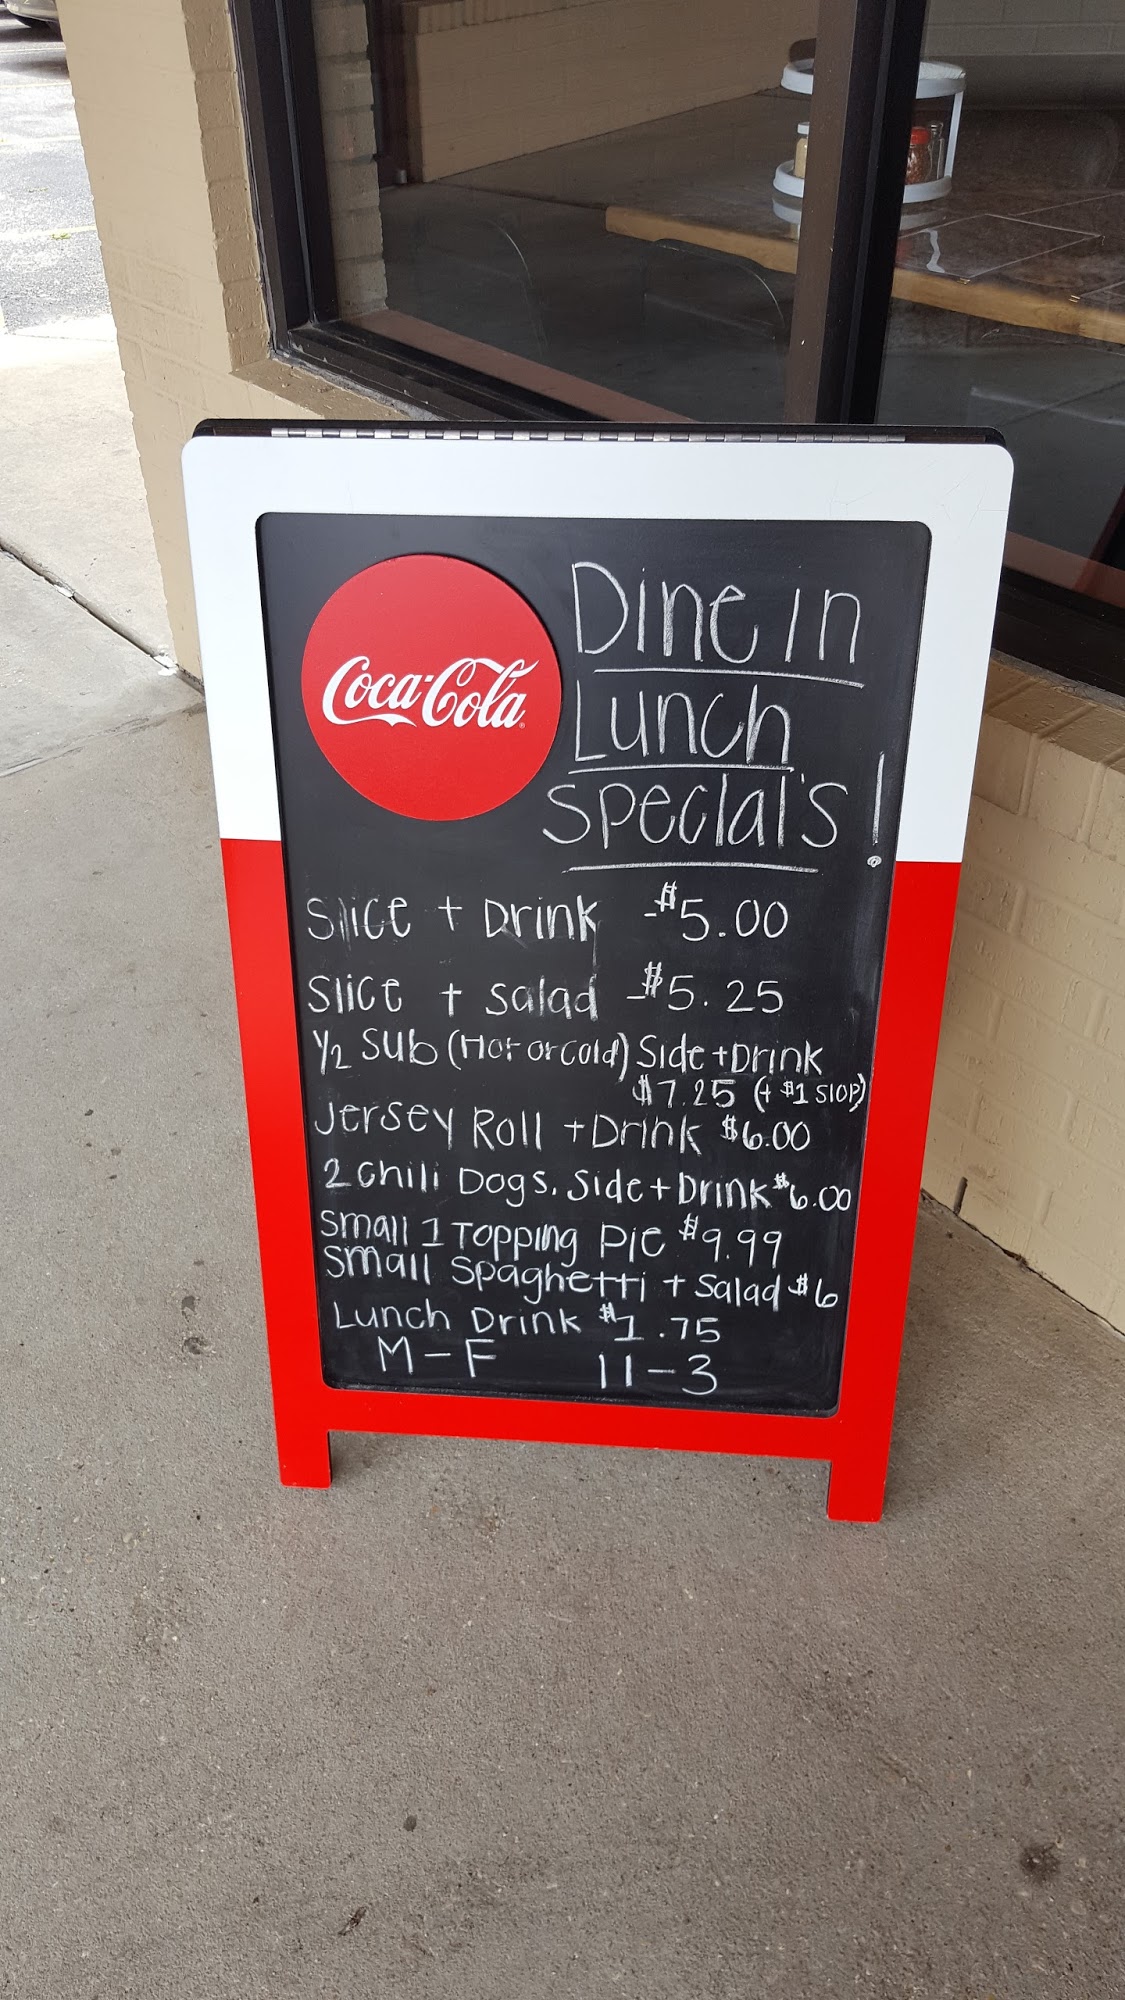 Coca-Cola
Dine in
Lunch
Special's!
Slice + Drink -$5.00
Slice + Salad -$5.25
1/2 Sub (Hot or Cold) Side + Drink
$7.25 (+ $1 SLOP)
Jersey Roll + Drink $6.00
2 Chili Dogs, Side + Drink $6.00
Small 1 Topping Pie $9.99
Small Spaghetti + Salad $6
Lunch Drink $1.75
M-F 11-3